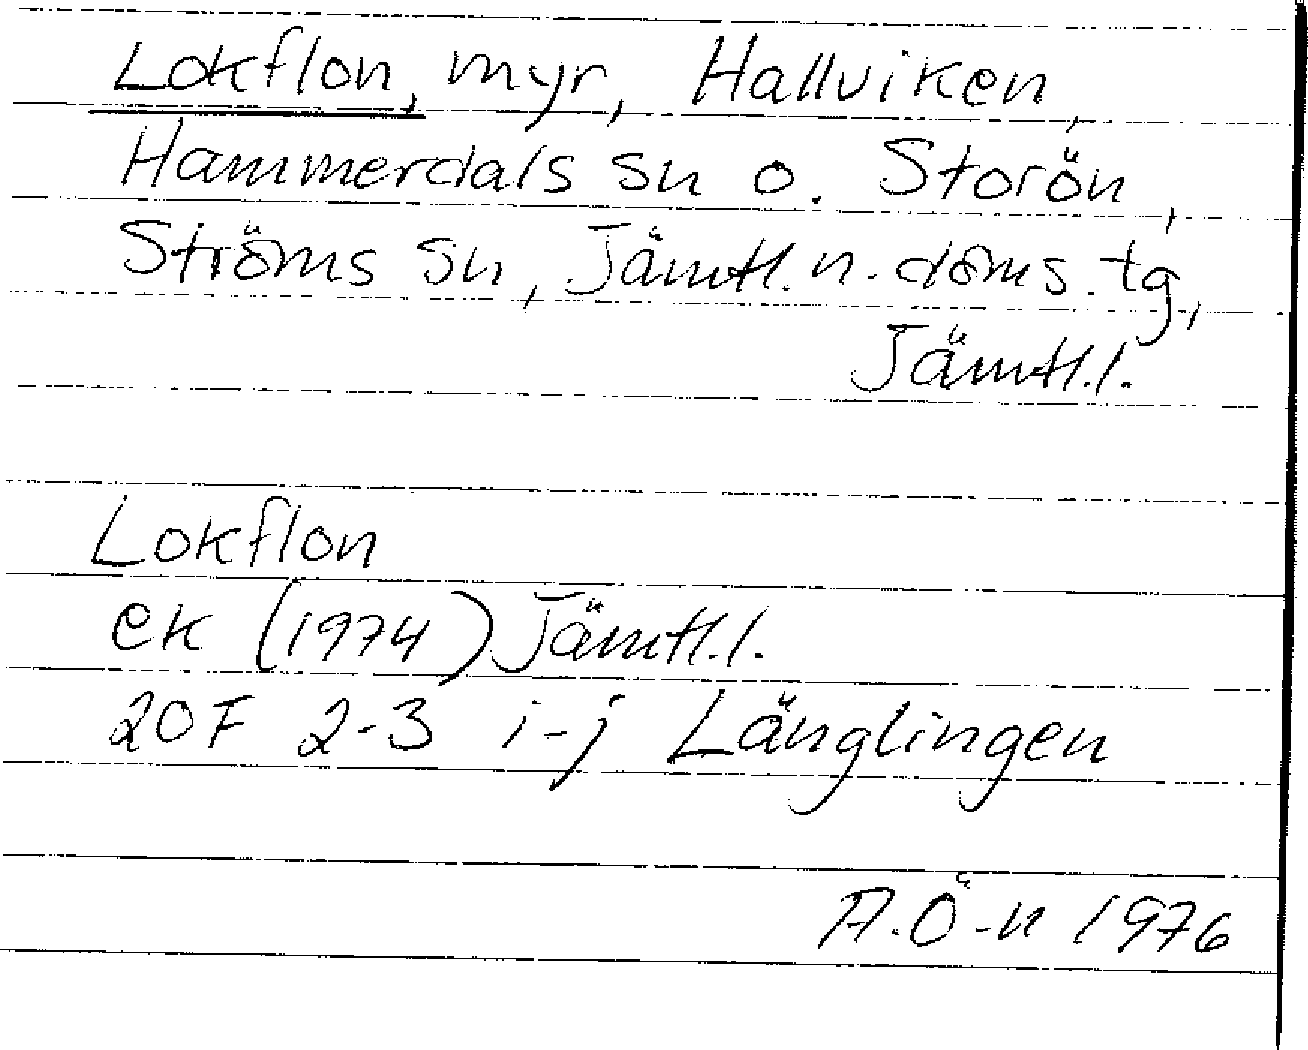 Lokflon, myr, Hallviken,
Hammerdals sn o. Storön,
Ströms sn, Jämtl. n. doms. tg,
Jämtl.l.
Lokflon
ek (1974) Jämtl.l.
20F 2-3 i-j Länglingen
A.Ö-n 1976